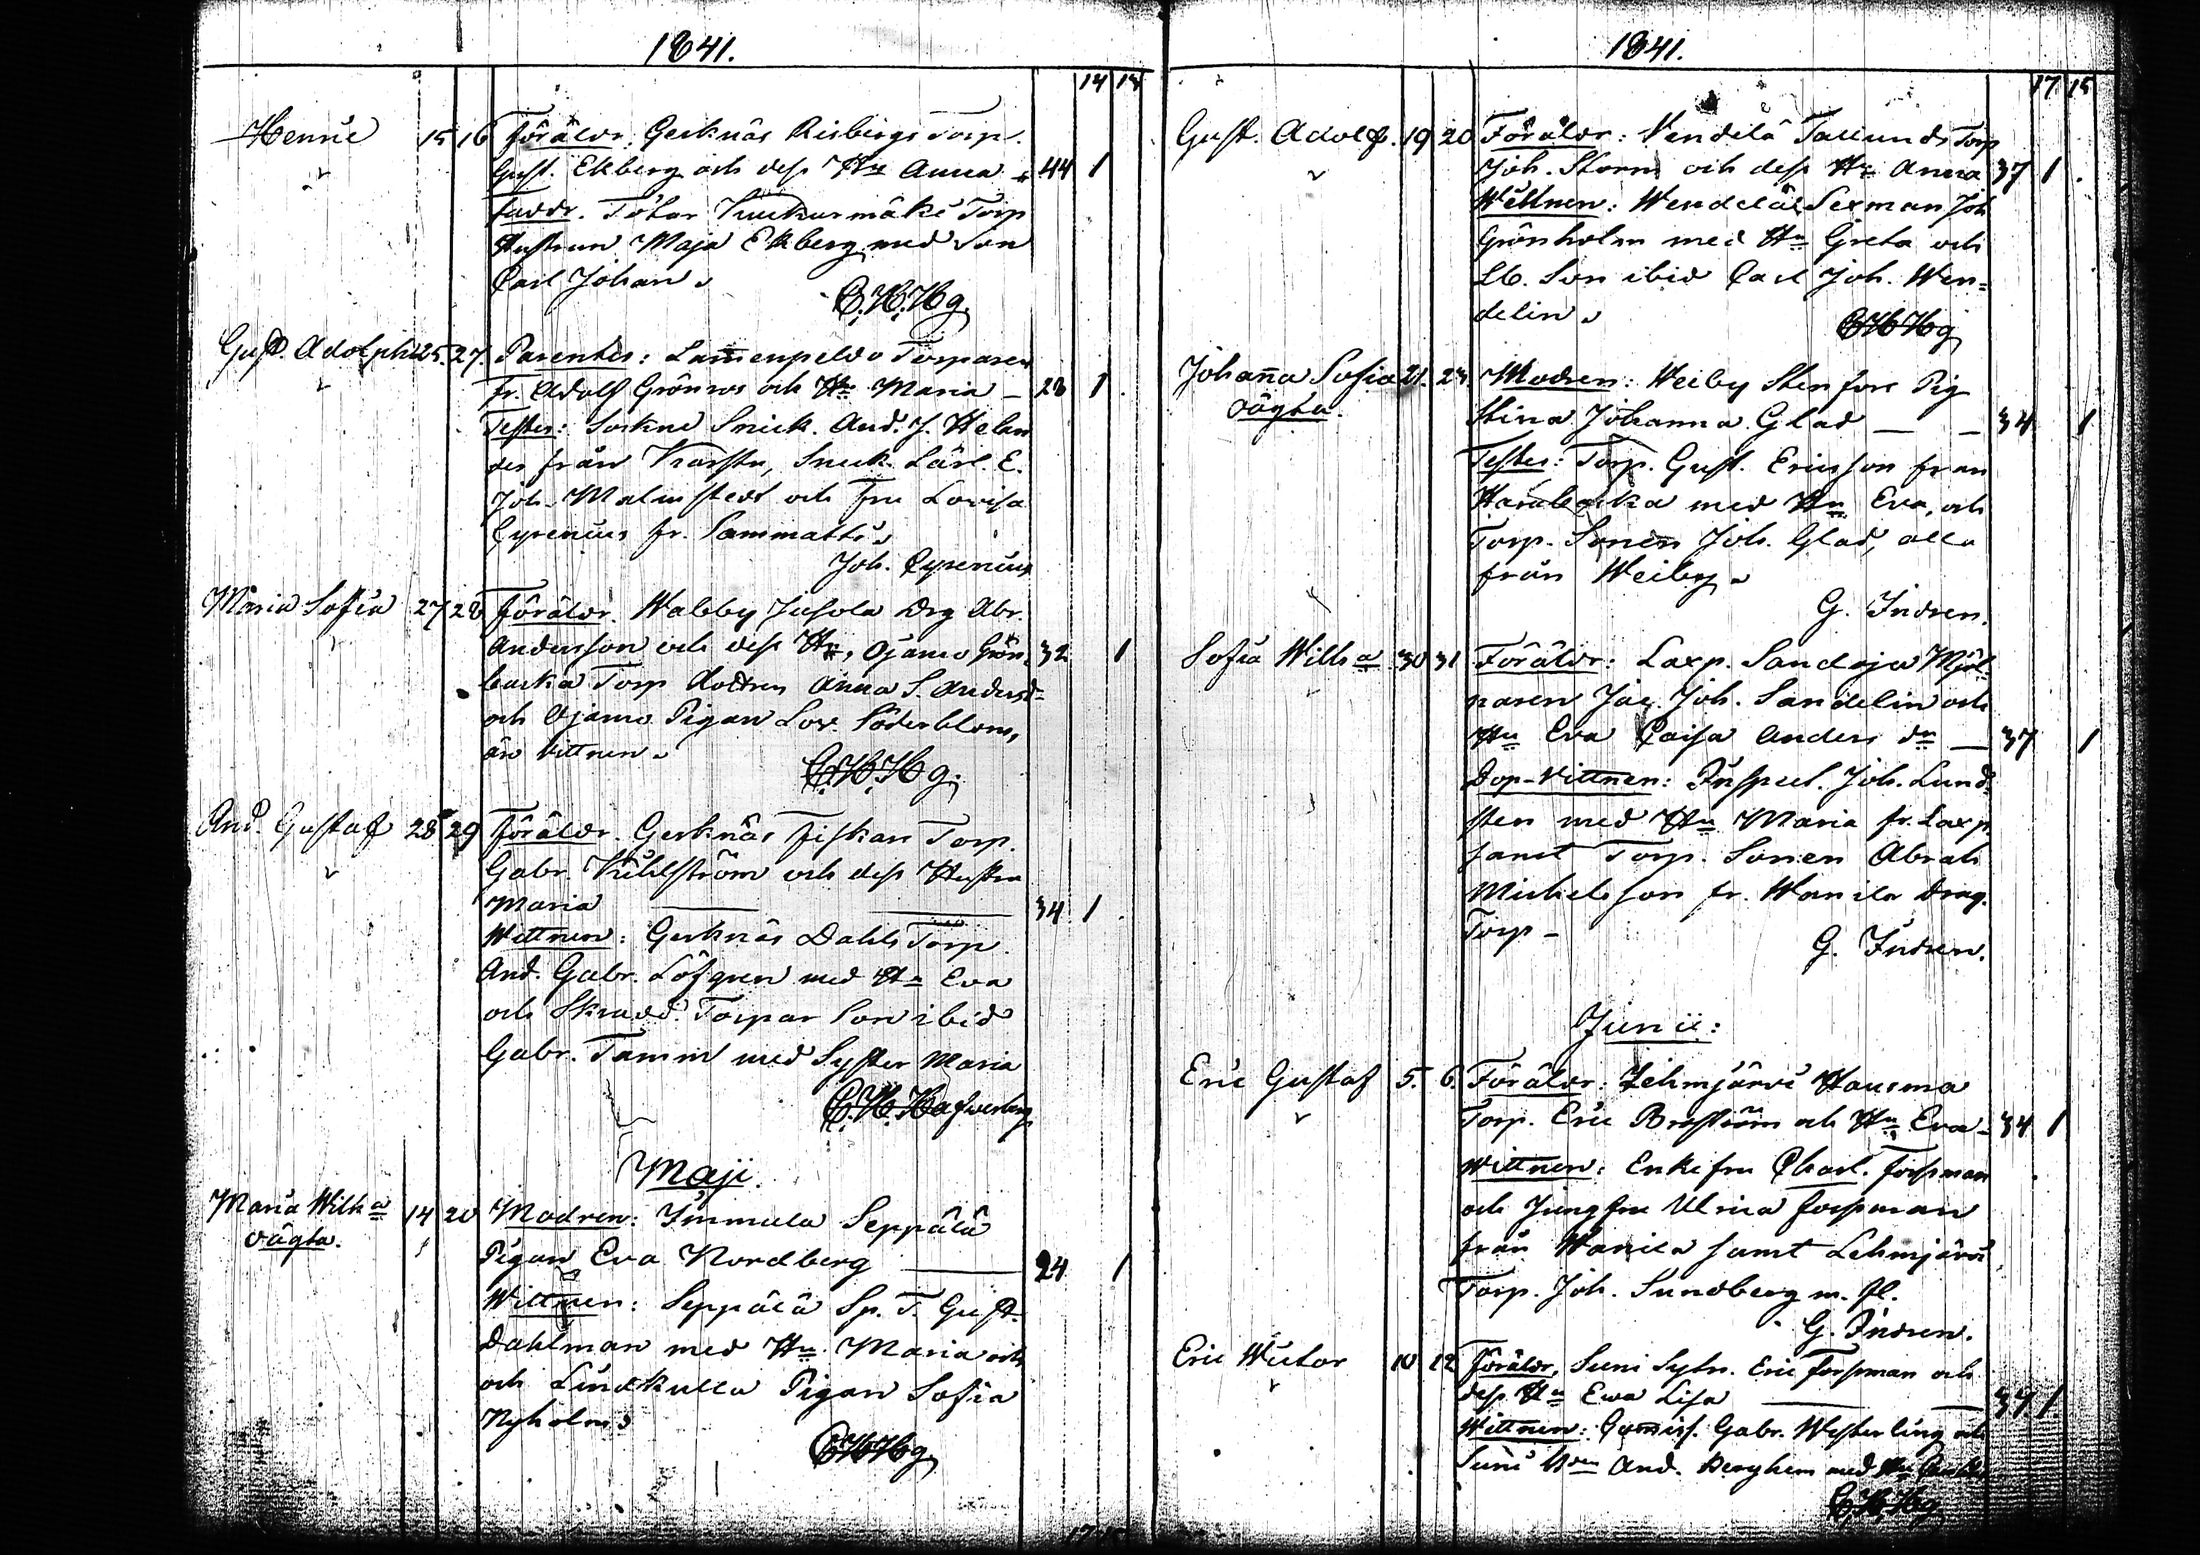 1841.
14 14
Henric 15 16 Föräldr. Gerknäs Risbergs Torp.
Gust. Ekberg och dess Hu Anna 44 1
Faddr. Tötar Kuckurmäki Torp
Hustrun Maja Ekberg med Son
Carl Johan.
C.H.Hg.
Gust. Adolph 25. 27. Parentes: Lamenpeldo Torparen
fr. Adolf Grönros och Hu Maria — 23 1
Testes: Sockne Snick. And. J. Helen
der från Karstu, Snick. Lärl. E.
Joh. Malmstedt och Fru Lovisa
Cyrenius fr. Sammatti.
Joh. Cyrenius
Maria Sofia 27 28 Föräldr. Wabby Jusola Drg Abr.
Andersson och dess Hu, Ojamo Grön- 32 1
backa Torp Dottren Anna S. Andersd-
och Ojamo Pigan Lov. Söderblom,
än vittnen.
C.H.Hg.
And. Gustaf 28 29 Föräldr. Gerknäs Fiskar Torp.
Gabr. Kihlström och dess Hustru
Maria 34 1
Wittnen: Gerknäs Dahls Torp
And. Gabr. Löfgren med Hu Eva
och Skradd. Torpar Son ibid
Gabr. Tamm med Syster Maria
C.H.Hafwerberg
Maji.
Maria Wilh:a 14 20 Modren: Immula Seppälä
oägta.
Pigan Eva Nordberg 24 1
Wittnen: Seppälä Sp. T. Gust.
Dahlman med Hu Maria och
och Lindkulla Pigan Sofia
Nyholm.
CHHg
1841.
17 15
Gust. Adolf. 19 20 Föräldr: Vendelä Tallunds Torp
Joh. Storm och dess Hu Anna 37 1
Wittnen: Wendelä Sexman Joh
Grönholm med Hu Greta och
Sb. Son ibid Carl Joh. Wen=
delin.
CHHg
Johanna Sofia 21. 23 Modren: Weiby Stenfors Pig
oägta.
Stina Johanna Glad — — 34 1
Testes: Torp. Gust. Ericsson från
Harabacka med Hu Eva, och
Torp. Sonen Joh. Glad, alla
från Weiby.
G. Indren.
Sofia Wilh:a 30 31 Föräldr: Laxp. Sandoja Mjöl-
naren Jac. Joh. Sandelin och
Hu Eva Caisa Anders dr — 37 1
Dop-Vittnen: Inspect. Joh. Lund-
sten med Hu Maria fr. Laxp.
samt Torp. Sonen Abrah
Michelsson fr. Wanila Drag.
Torp —
G. Indren.
Junii:
Eric Gustaf 5. 6. Föräldr: Lehmjärvi Hausma
Torp. Eric Broström och Hu Eva — 34 1
Wittnen: Enkefru Charl. Forsman
och Jungfru Ulrica Forsman
från Wanila samt Lehmjärvi
Torp. Joh. Sundberg m. fl.
G. Indren.
Eric Wictor 10 12 Föräldr, Suni Sytn. Eric Forsman och
dess Hu Ewa Lisa 37 1
Wittnen: Commiss. Gabr. Westerling och
Suni And. Berghem med Hu
C.H.Hg
17 15